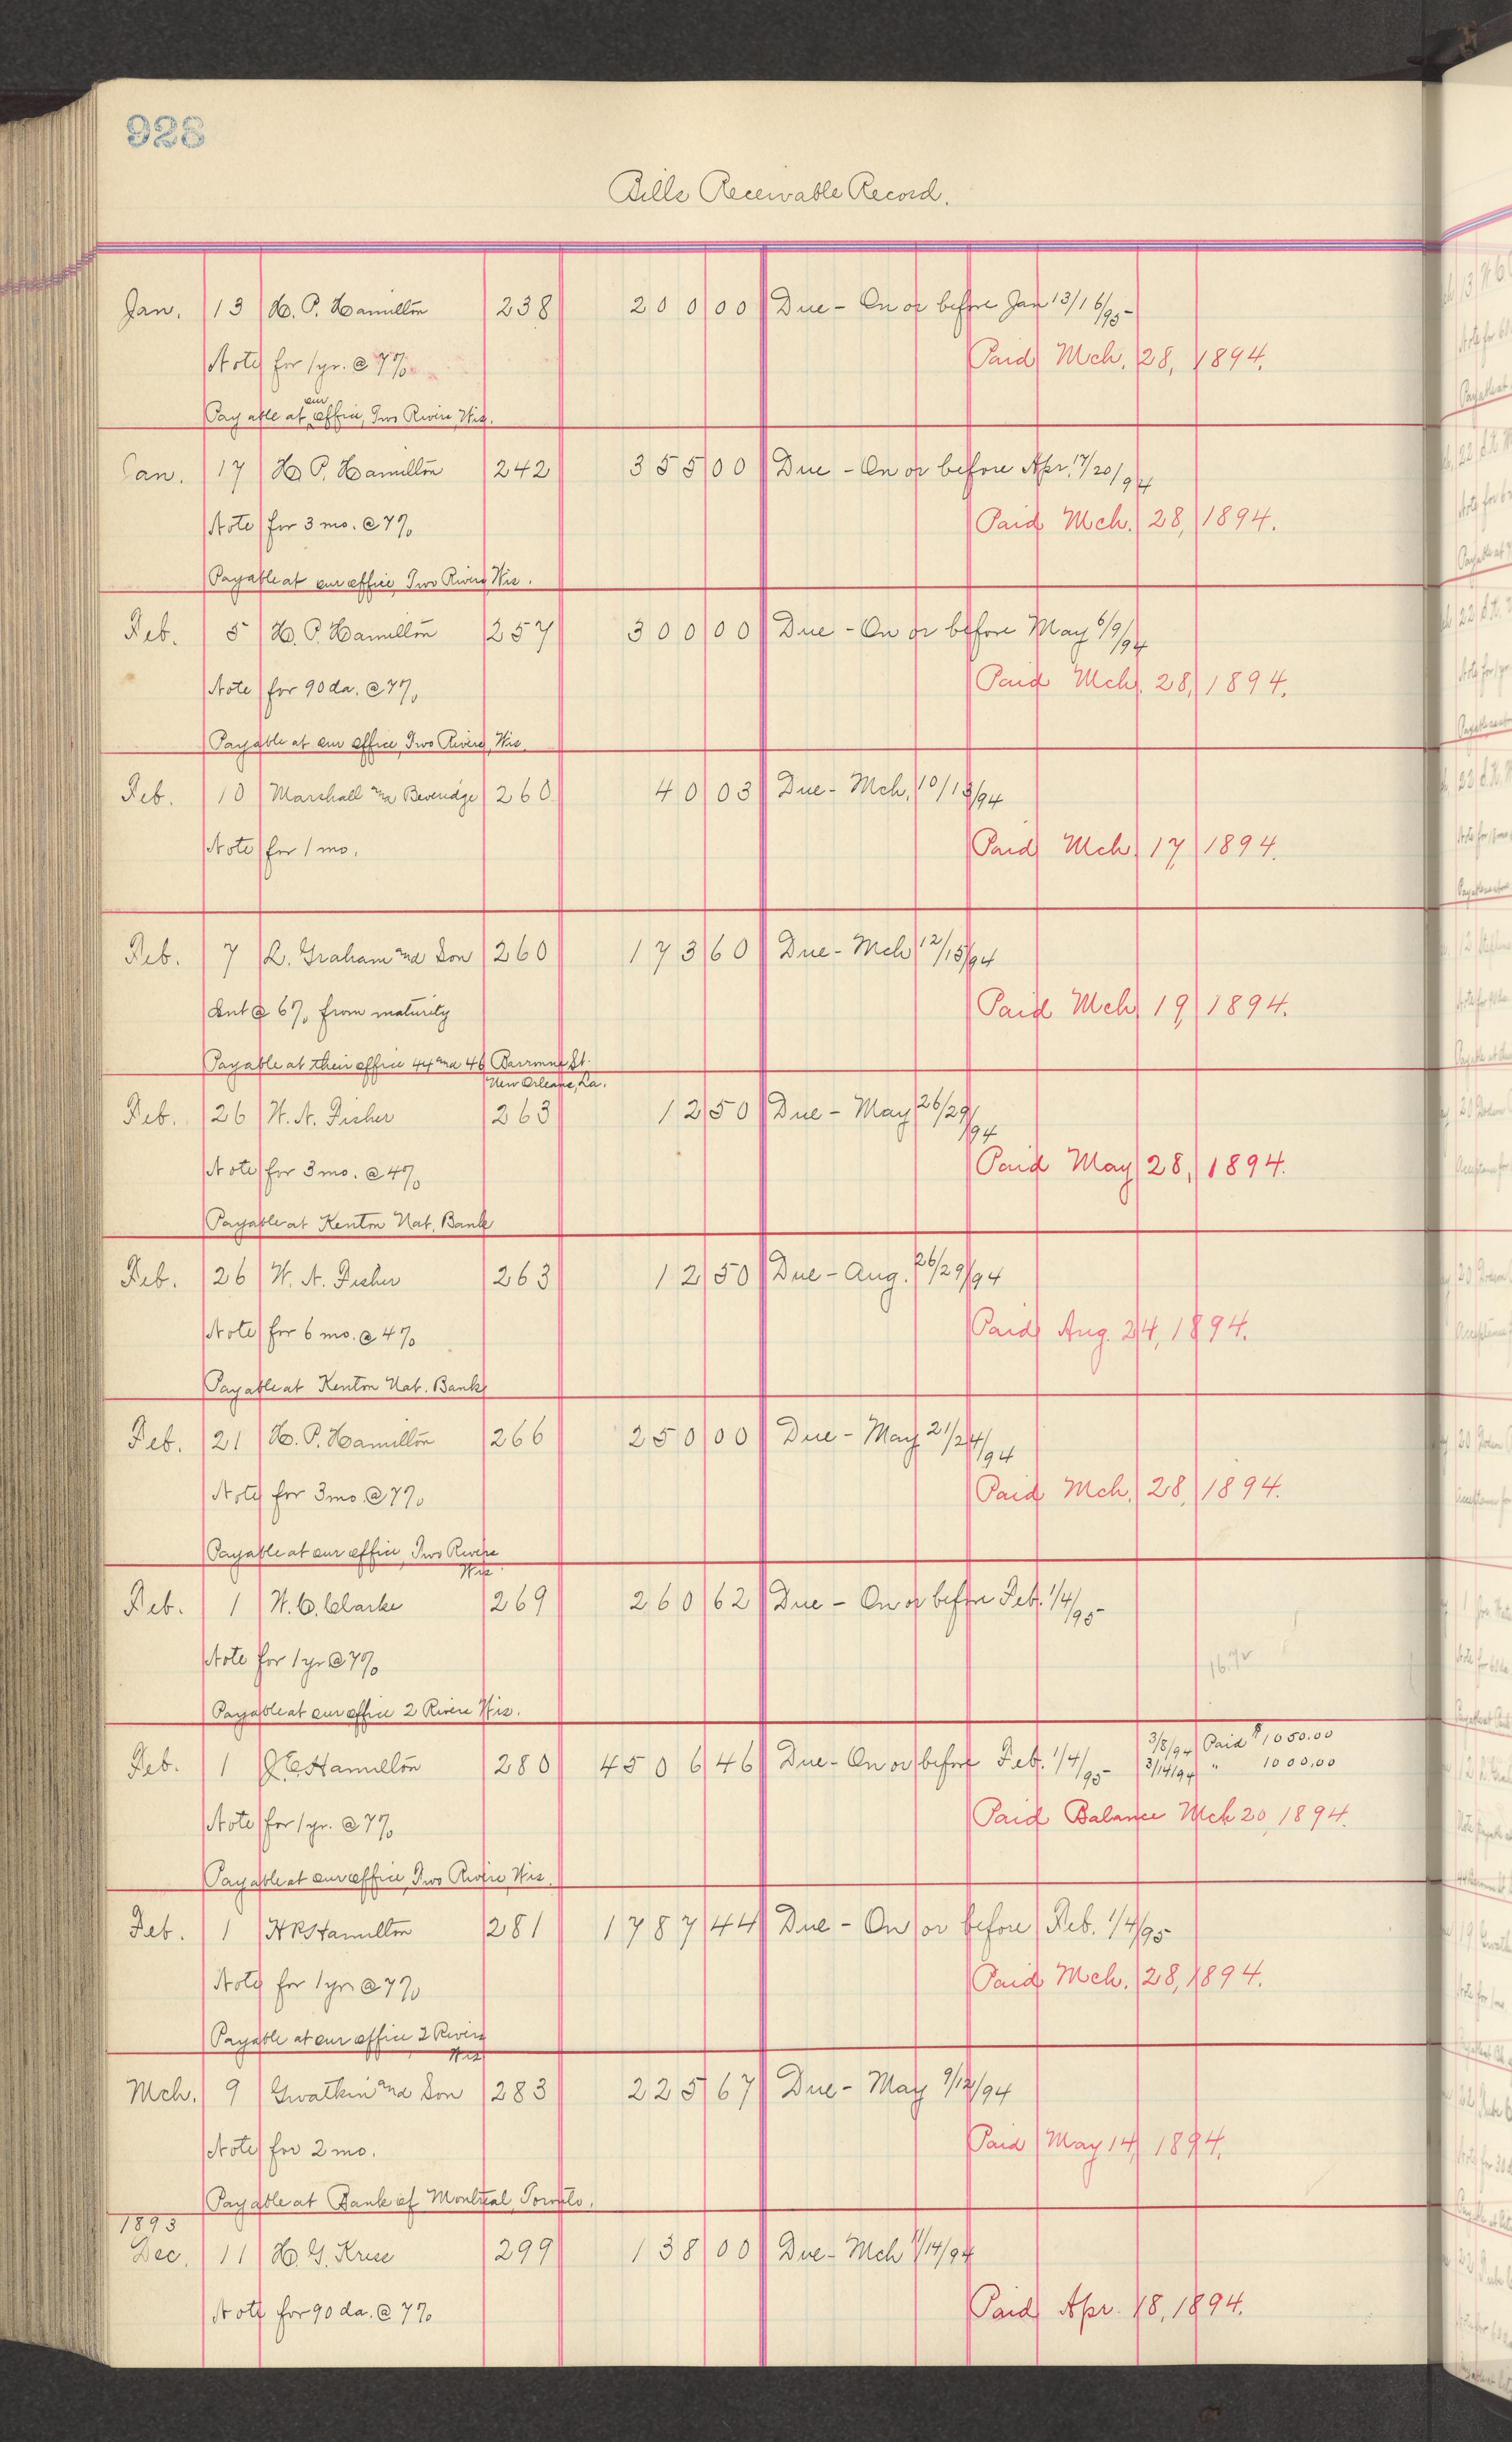 928
Bills Receivable Record.
Jan. 13 H. P. Hamilton 238 200 00 Due - On or before Jan 13/16/95
Note for 1 yr. @ 7%
Paid Mch. 28, 1894.
Payable at our office, Two Rivers, Wis.
Jan. 17 H. P. Hamilton 242 355 00 Due - On or before Apr. 17/20/94
Note for 3 mo. @ 7%
Paid Mch. 28, 1894.
Payable at our office, Two Rivers, Wis.
Feb. 5 H. P. Hamilton 257 300 00 Due - On or before May 6/9/94
Note for 90 da. @ 7%
Paid Mch. 28, 1894.
Payable at our office, Two Rivers, Wis.
Feb. 10 Marshall and Beveridge 260 40 03 Due - Mch. 10/13/94
Note for 1 mo.
Paid Mch 17, 1894.
Feb. 7 L. Graham and Son 260 173 60 Due - Mch 12/15/94
Int @ 6% from maturity
Paid Mch 19, 1894.
Payable at their office 44 and 46 Baronne St.
New Orleans, La.
Feb. 26 W. A. Fisher 263 12 50 Due - May 26/29/94
Note for 3 mo. @ 4%
Paid May 28, 1894.
Payable at Kenton Nat. Bank
Feb. 26 W. A. Fisher 263 12 50 Due - Aug. 26/29/94
Note for 6 mo. @ 4%
Paid Aug. 24, 1894.
Payable at Kenton Nat. Bank
Feb. 21 H. P. Hamilton 266 250 00 Due - May 21/24/94
Note for 3 mo. @ 7%
Paid Mch. 28, 1894.
Payable at our office, Two Rivers
Wis.
Feb. 1 W. C. Clarke 269 260 62 Due - On or before Feb. 1/4/95
Note for 1 yr @ 7%
Payable at our office 2 Rivers Wis.
Feb. 1 J. E. Hamilton 280 4506 46 Due - On or before Feb. 1/4/95 3/8/94 Paid $1050.00
3/14/94 " 1000.00
Note for 1 yr. @ 7%
Paid Balance Mch 20, 1894.
Payable at our office, Two Rivers, Wis.
Feb. 1 H P Hamilton 281 1787 44 Due - On or before Feb. 1/4/95
Note for 1 yr @ 7%
Paid Mch. 28, 1894.
Payable at our office 2 Rivers
Wis
Mch. 9 Gwatkin and Son 283 225 67 Due - May 9/12/94
Note for 2 mo.
Paid May 14, 1894.
Payable at Bank of Montreal, Toronto.
1893
Dec. 11 H. G. Kruse 299 138 00 Due - Mch 11/14/94
Note for 90 da. @ 7%
Paid Apr. 18, 1894.